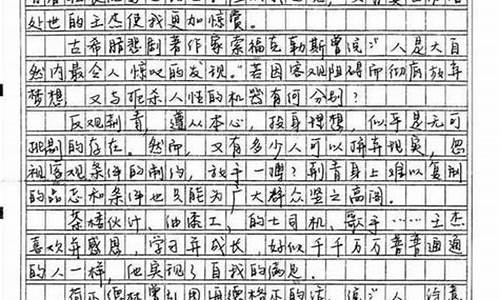 处世的王杰使我更加惊赏。
古希腊悲剧著作家索福克勒斯曾说：“人是大自
然内最令人惊叹的发现。”若因客观阻碍而彻底放弃
梦想，又与扼杀人性的机器有何分别？
反观荆青，遵从本心，投身理想，似乎是无可
挑剔的存在。然而，又有多少人可以摒弃现实，忽
视客观条件的制约，放手一搏？荆青身上难以复制
的品志和条件也只能为广大群众竖立高阁。
茶楼伙计、油漆工、的士司机、歌手……王杰
喜欢并感恩，学习并成长，好似千千万万普普通通
的人一样，他实现了自我的满足。